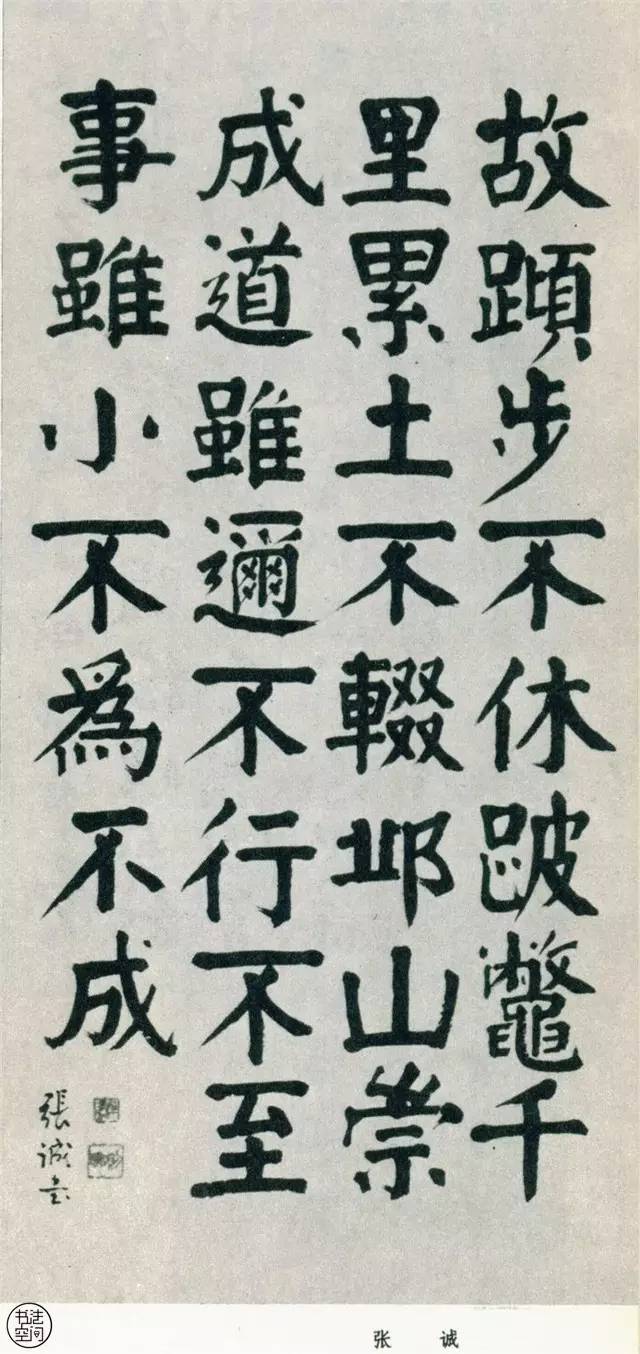 故蹞步不休跛鼈千
里累土不輟邱山崇
成道雖邇不行不至
事雖小不爲不成
張誠书
张 诚
书法
空间